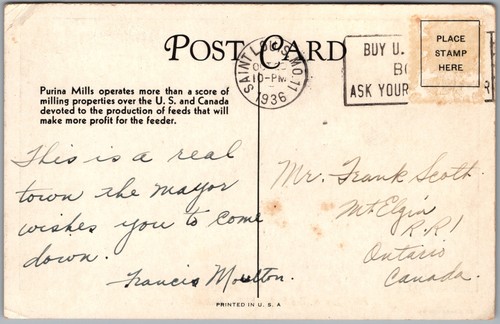 POST CARD
SAINT LOUIS, MO. 11
10-PM
1936
BUY U.
ASK YOUR
PLACE
STAMP
HERE
Purina Mills operates more than a score of
milling properties over the U. S. and Canada
devoted to the production of feeds that will
make more profit for the feeder.
This is a real
town the mayor
wishes you to come
down.
Francis Moulton.
Mr. Frank Scott.
Mt Elgin
R.R 1
Ontario
Canada.
PRINTED IN U. S. A